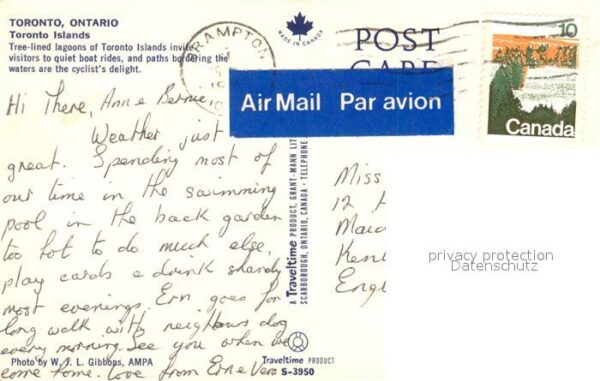 TORONTO, ONTARIO
Toronto Islands
Tree-lined lagoons of Toronto Islands invite
visitors to quiet boat rides, and paths bordering the
waters are the cyclist's delight.
MADE IN CANADA
BRAMPTON
POST
CARD
10
Canada
Air Mail Par avion
Hi There, Ann e Bernie,
Weather just
great. Spending most of
our time in the swimming
pool in the back garden
too hot to do much else,
play cards e drink shandy
most evenings. Ern goes for
long walk with neighbours dog
every morning. See you when we
come home. Love from Ern e Vera
Miss
12
Maid
Kent
Engl
privacy protection
Datenschutz
A Traveltime PRODUCT, GRANT-MANN LIT
SCARBOROUGH, ONTARIO, CANADA · TELEPHONE
Photo by W. J. L. Gibbons, AMPA
Traveltime PRODUCT
S-3950